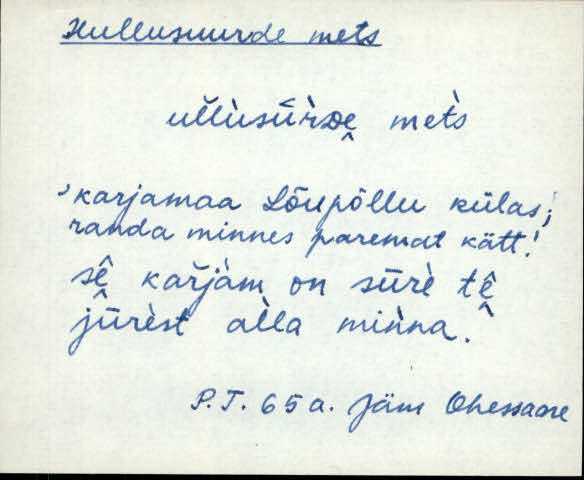 Hullusuurde mets
ul̆lùsū̆̀rᴅe̬ mets̀
'karjamaa Lõupõllu külas;
randa minnes paremat kätt.'
sē̬ kar̆jàm on sūrè tē̬
jūrèst al̀la miǹna.
P.T. 65 a. Jäm Ohessaare